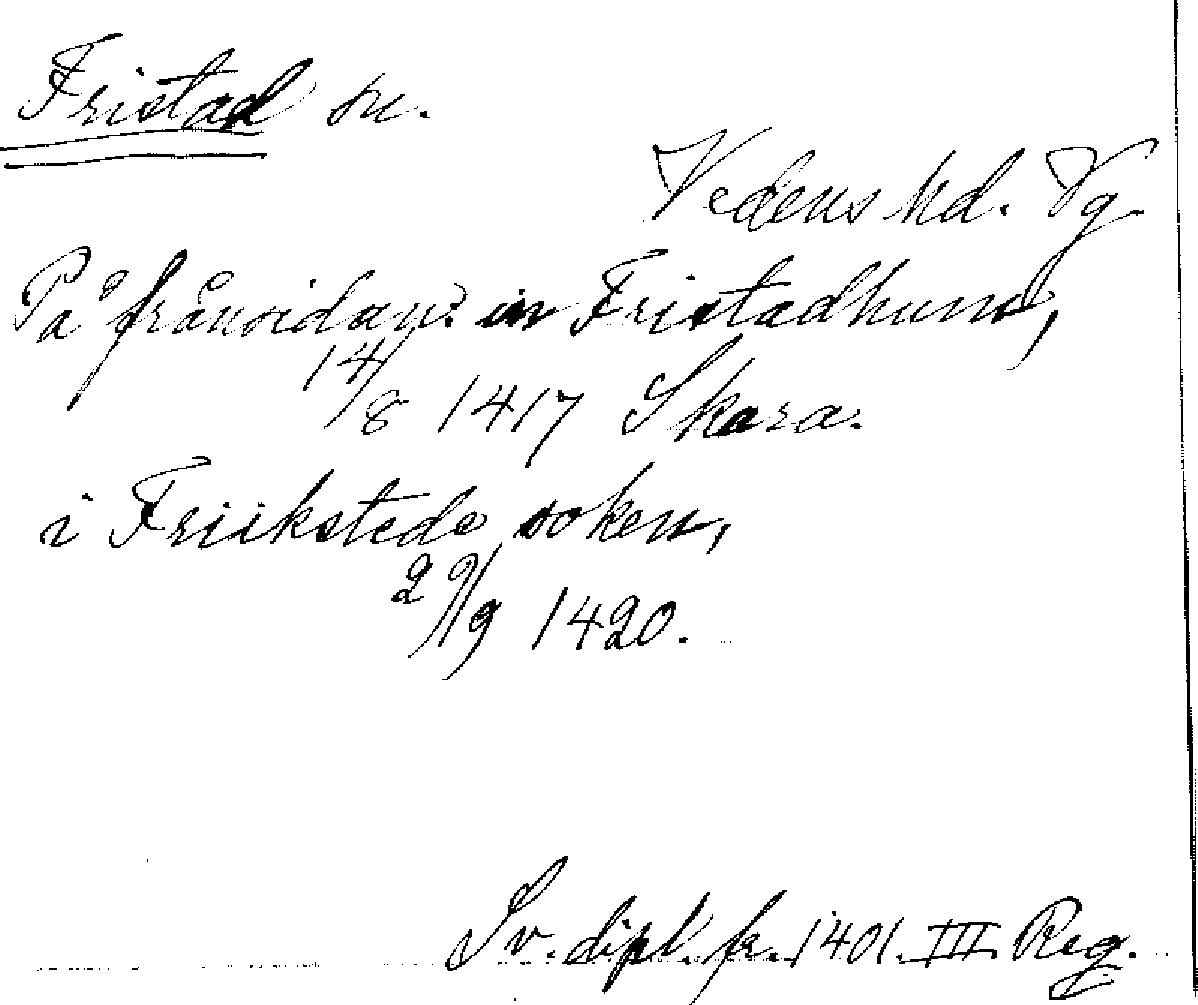 Fristad sn.
Vedens hd. Vg.
På frånsidan: in Fristadhund,
14/8 1417 Skara.
i Friikstede soken,
29/9 1420.
Sv. dipl. fr. 1401. III. Reg.